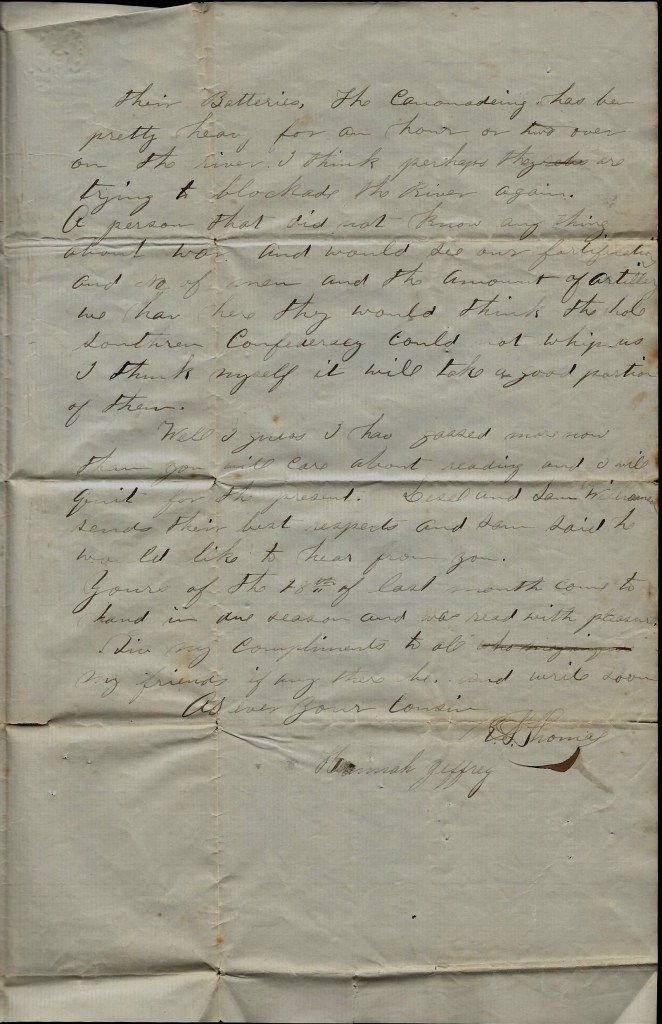 their Batteries, The Canonadeing has ben
pretty heavy for an hour or two over
on the river. I think perhaps they are
trying to blockade the River again.
A person that did not know any thing
about war and would see our fortificatio
and No. of men and the amount of artiller
we hav here they would think the hole
southren Confederacy could not whip us
I think myself it will take a good portion
of them.
Well I guess I hav passed more now
than you will care about reading and I will
quit for the present. and Sam Williams
sends their best respects and Sam said he
would like to hear from you.
Yours of the 28th of last month come to
hand in due season and was read with pleasure.
Giv my compliments to all
my friends if any there be. and write soon
As ever your Cousin
E. S. Thomas
Hannah Jeffrey